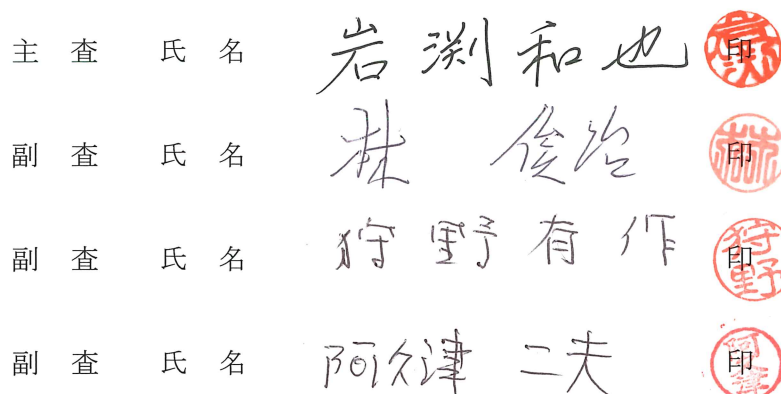 主査 氏名 岩渕和也 印
副査 氏名 林 俊治 印
副査 氏名 狩野有作 印
副査 氏名 阿久津 二夫 印